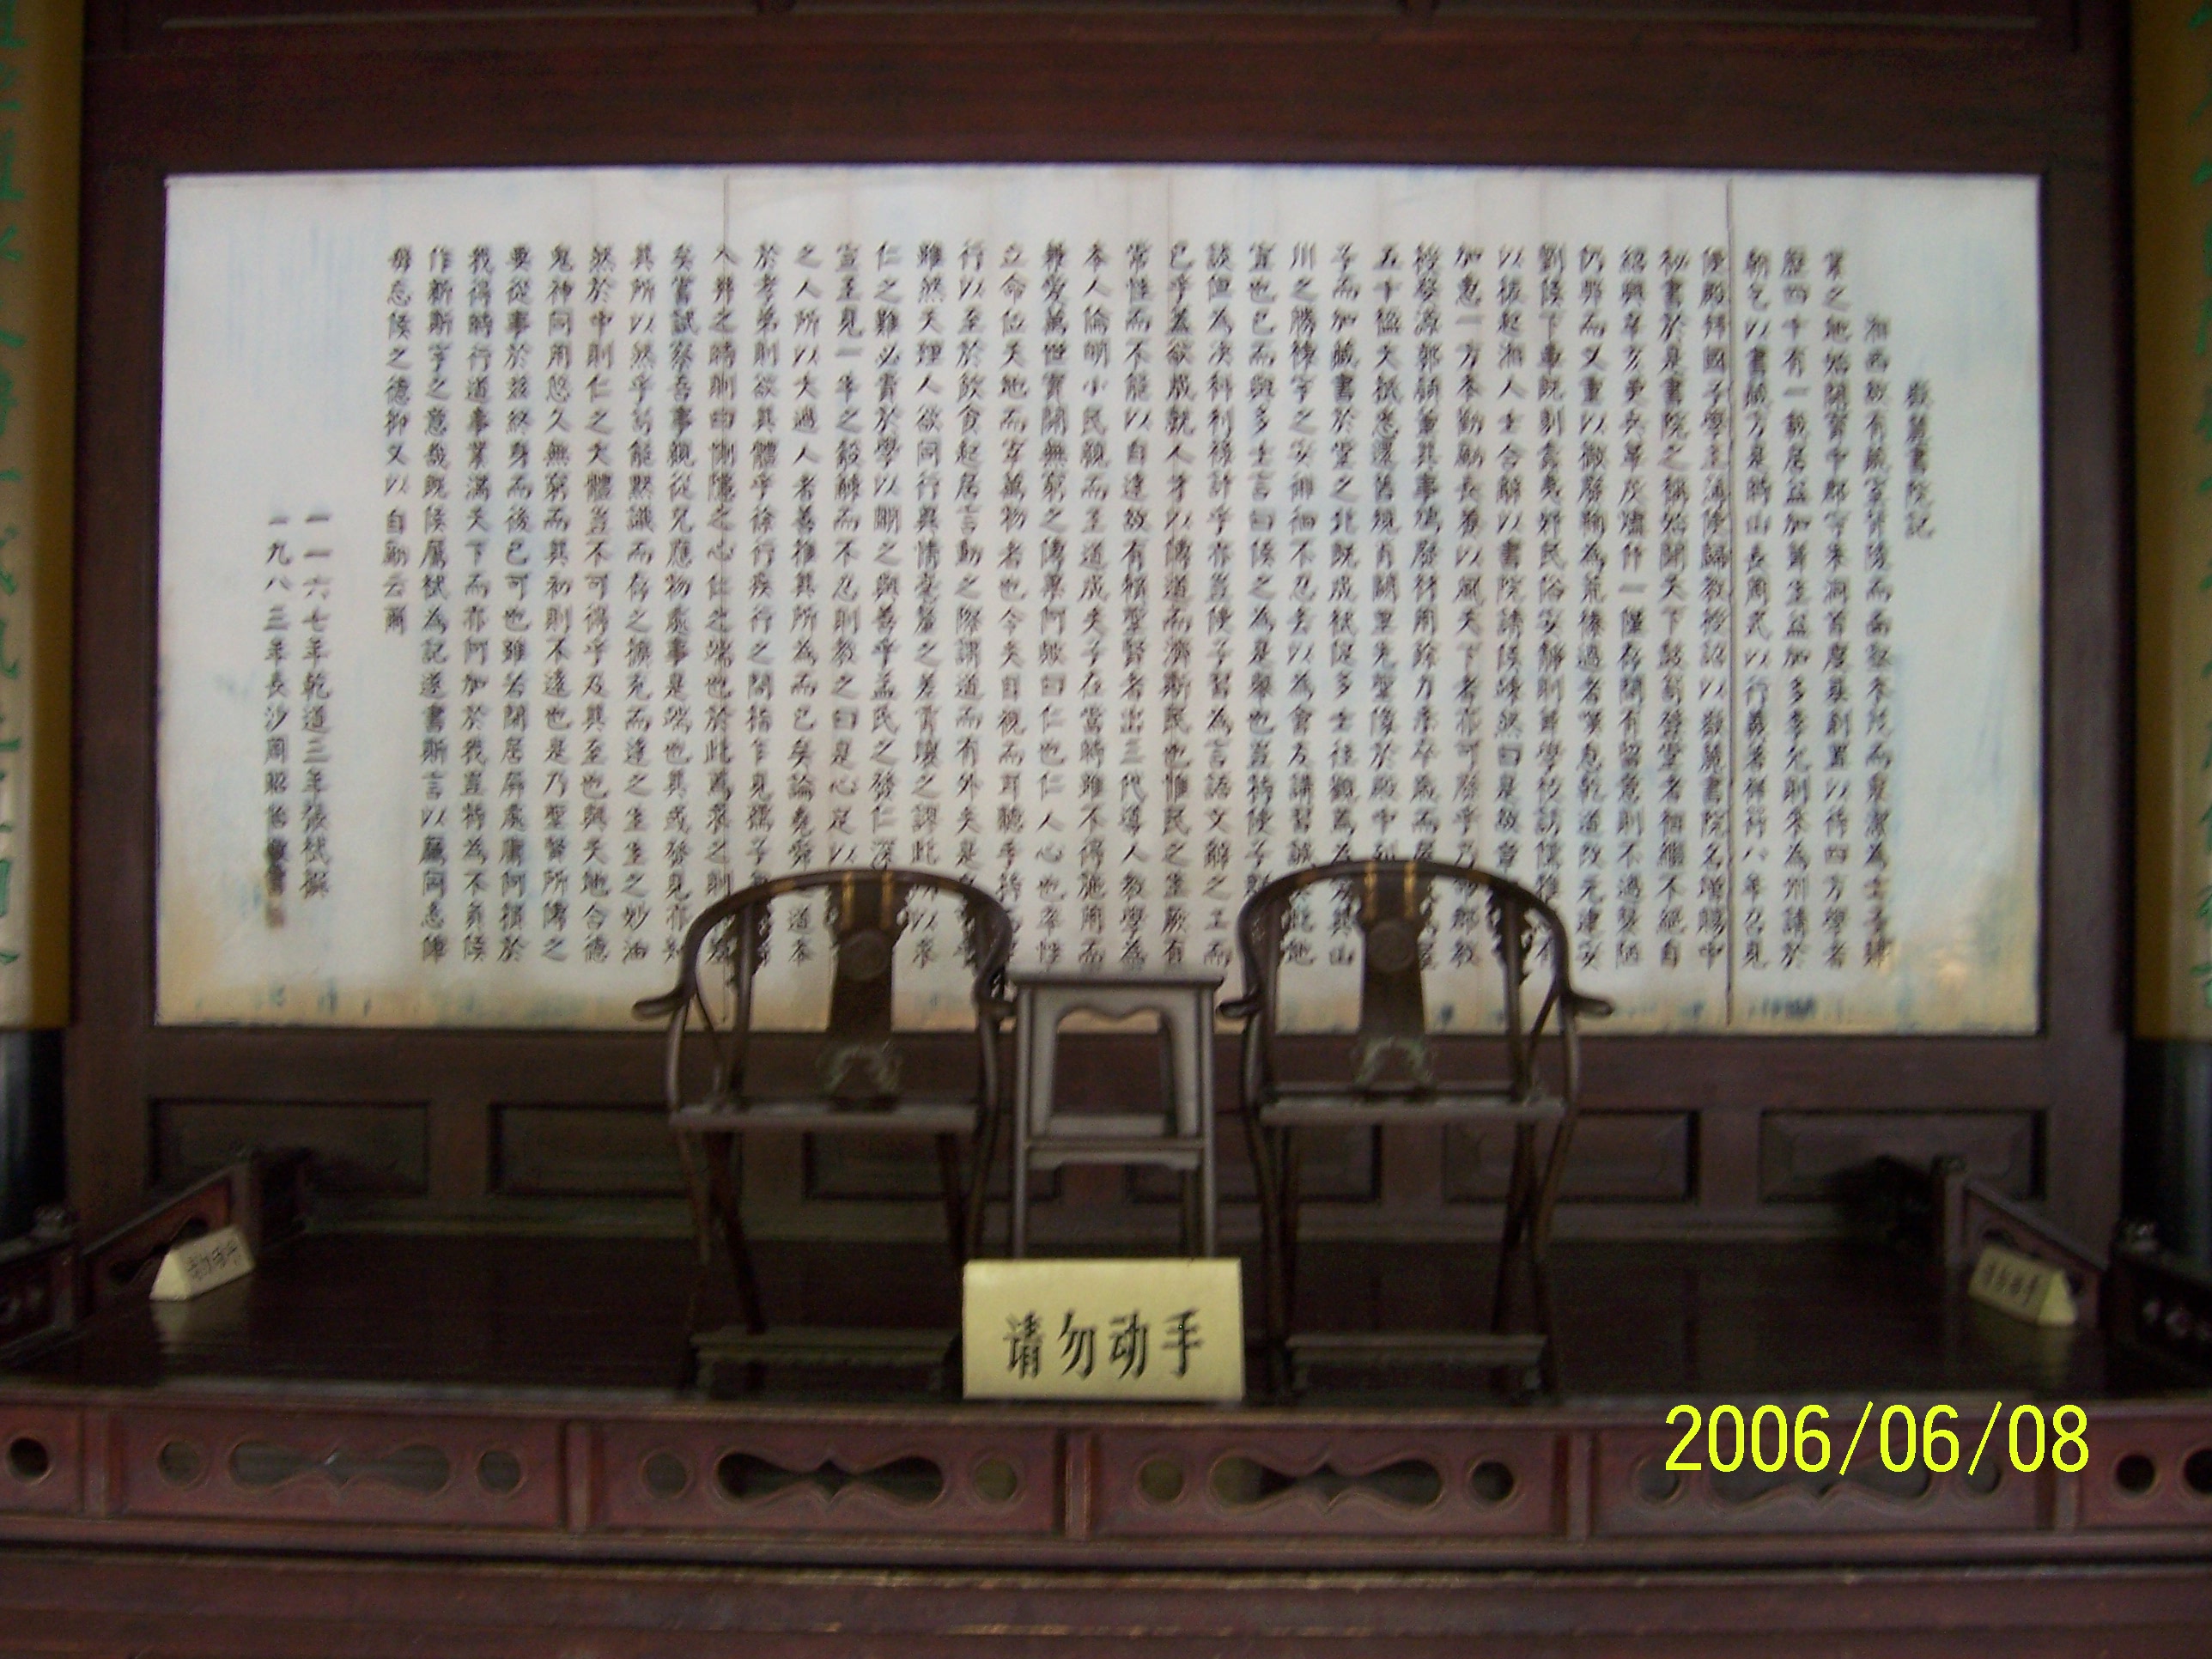 嶽麓書院記
湘西故有藏室背陵而面壑木茂而泉潔為士子肄
業之地始開寶中郡守朱洞首度基創置以待四方學者
歷四十有一載居益加葺生益加多李允則來為州請於
朝乞以書藏方是時山長周式以行義著祥符八年召見
便殿拜國子學主簿使歸教授詔以嶽麓書院名增賜中
秘書於是書院之稱始聞天下鼓笥登堂者相繼不絕自
紹興辛亥更兵革灰燼什一僅存間有留意則不過襲陋
仍弊而又重以撤廢鞠為荒榛過者嘆息乾道改元建安
劉侯下車既剔蠹夷姦民俗安靜則葺學校訪儒雅有
以振起湘人士合辭以書院請侯竦然曰是故章
加惠一方來勸勵長養以風天下者亦可廢乎乃郡教
授婺源郭穎董其事鳩廢材用餘力未卒歲而屋屋
五十楹大抵悉還舊規肖闕里先聖像於殿中列
子而加藏書於堂之北既成栻從多士往觀焉為其山
川之勝棟宇之安徘徊不忍去以為會友講習誠此地
宜也已而與多士言曰侯之為是舉也豈特使子群
談但為決科利祿計乎亦豈使子習為言語文辭之工而
已乎蓋欲成就人才以傳道而濟斯民也惟民之生厥有
常性而不能以自達故有賴聖賢者出三代導人教學為
本人倫明小民親而王道成夫子在當時雖不得施用而
兼愛萬世實開無窮之傳果何歟曰仁也仁人心也率性
立命位天地而宰萬物者也今夫目視而耳聽手持而
行以至於飲食起居言動之際謂道而有外夫是乎
雖然天理人欲同行異情毫釐之差霄壤之謬此所以求
仁之難必貴於學以明之與善乎孟氏之發仁深
宣王見一牛之觳觫而不忍則教之曰是心足以
之人所以大過人者善推其所為而已矣論堯舜道本
於孝弟則欲其體乎徐行疾行之間指乍見孺子將
入井之時則曰惻隱之心仁之端也於此焉求之則差
矣嘗試察吾事親從兄應物處事是端也其或發見亦知
其所以然乎苟能默識而存之擴充而達之生生之妙油
然於中則仁之大體豈不可得乎及其至也與天地合德
鬼神同用悠久無窮而其初則不遠也是乃聖賢所傳之
要從事於茲終身而後已可也雖若閒居屏處庸何損於
我得時行道事業滿天下而亦何加於我豈特為不負侯
作新斯宇之意哉既侯屬栻為記遂書斯言以厲同志俾
毋忘侯之德抑又以自勵云爾
一一六七年乾道三年張栻撰
一九八三年長沙周昭怡敬書
请勿动手
请勿动手
请勿动手
2006/06/08